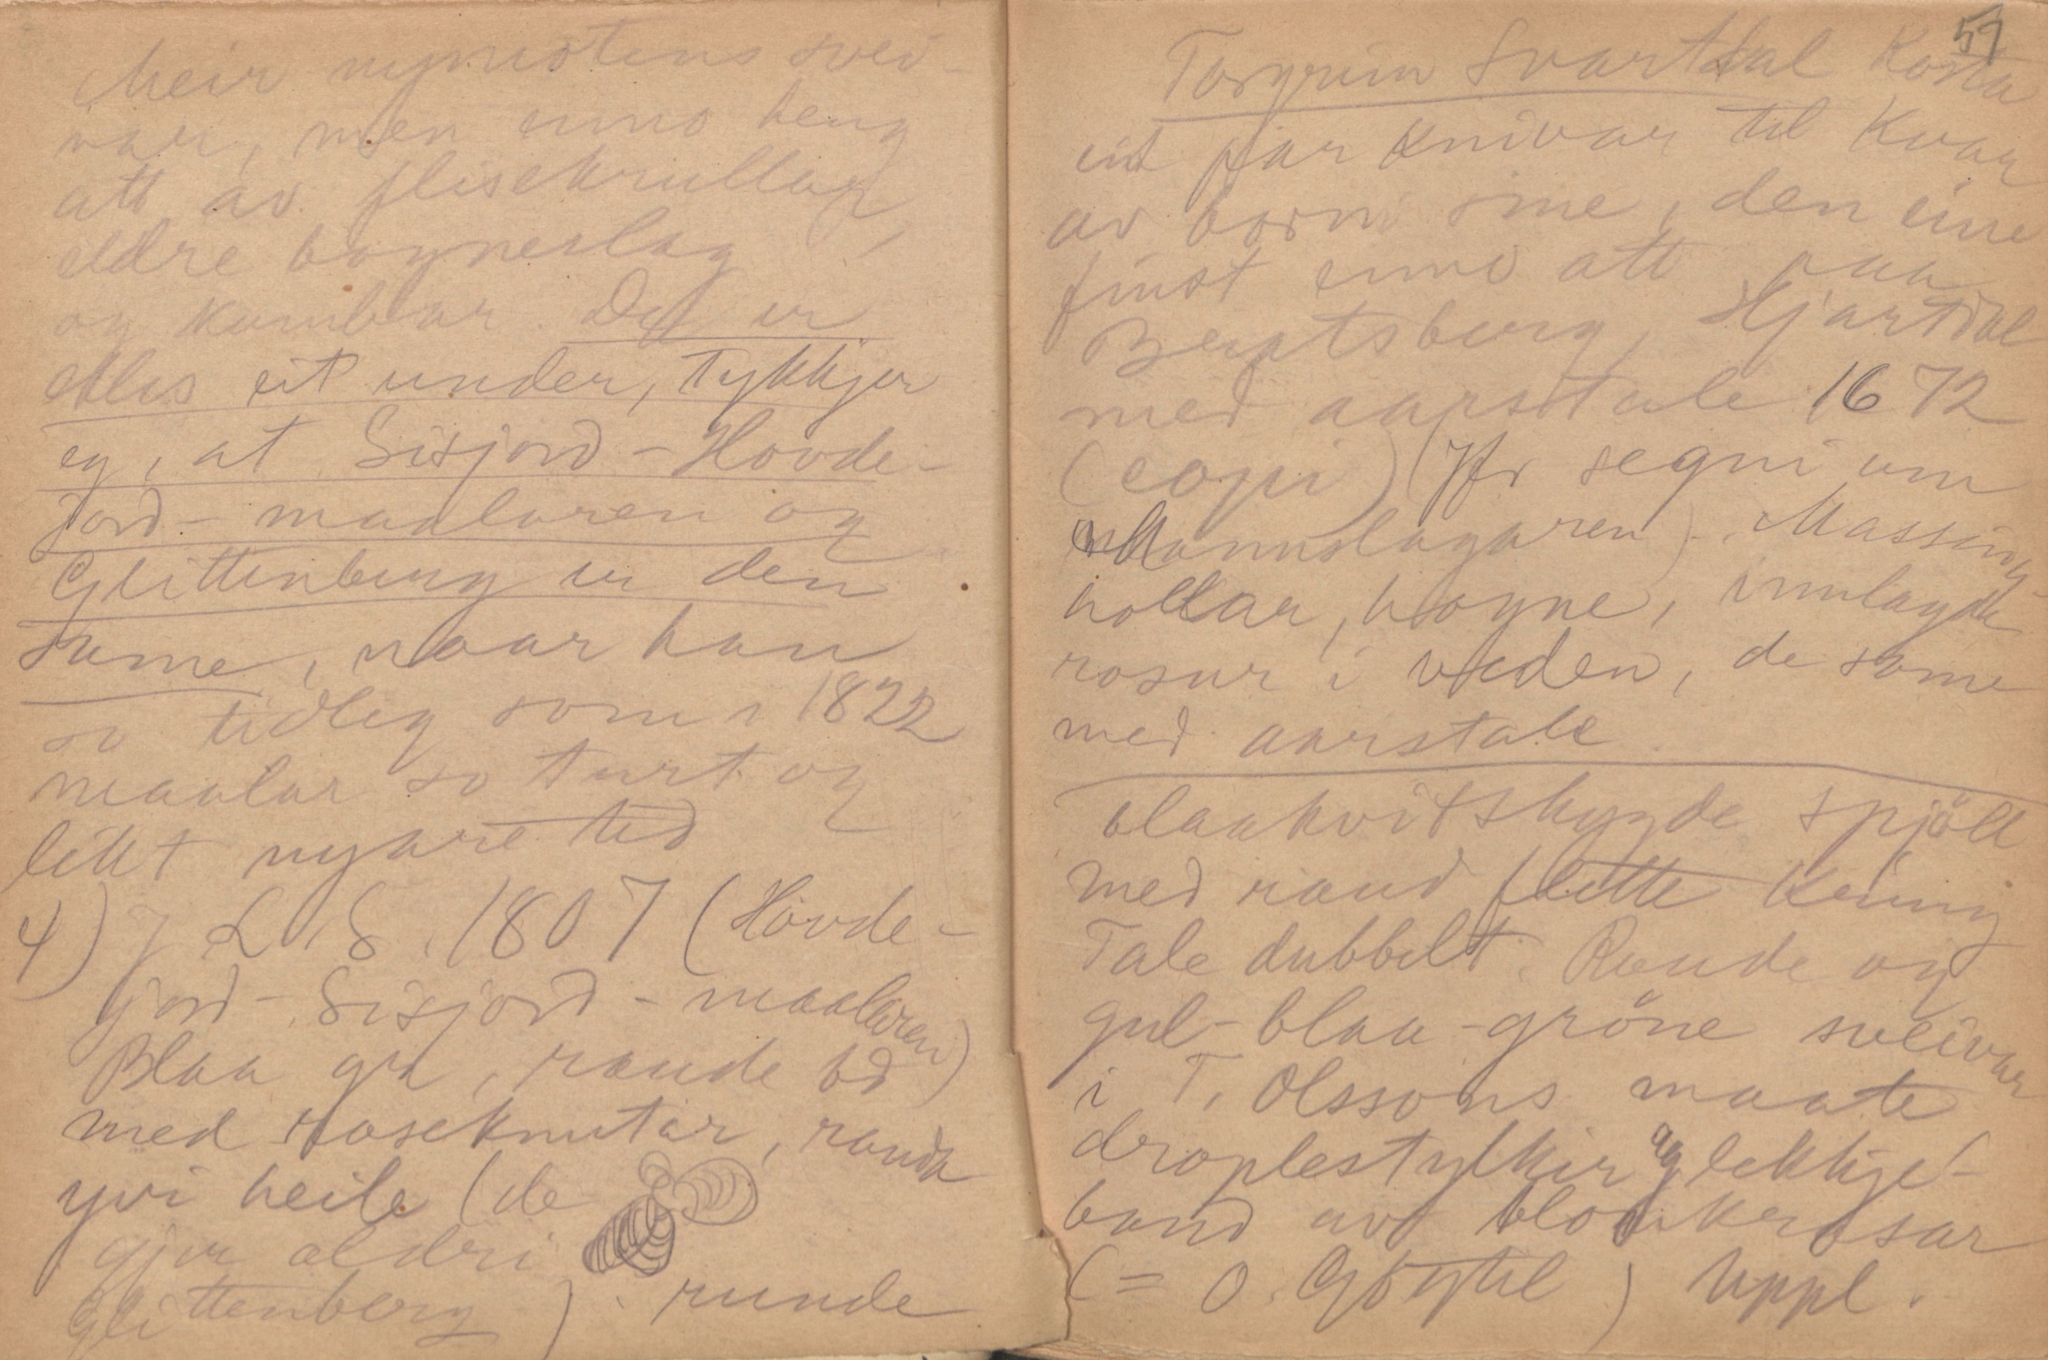 Meir nymotens svei-
var, men enno heng
att av flisekrullar,
eldre bogneslag
og kumbar. Det er
elles eit under, tykkjer
eg, at Sisjord-Hovde-
jord-maalaren og
Glittenberg er den
same, naar han
so tidleg som i 1822
maalar so turt og
likt nyare tid
4) J L S. 1807 (Hovde-
jord-Sisjord-maalaren)
Blaa gr, raude bd
med roseknutar, raude
yvi heile (de
gjer aldri
Glittenberg). runde
57
Torgrim Svartdal Kosta
eit par knivar til kvar
av borni sine, den eine
finst enno att paa
Bentsberg, Hjartdal
med aarstale 1672
(copi) (Jfr segni um
Mannslagaren). Massing-
hollar, bogne, innlagde
rosur i veden, de same
med aarstale.
blaakvitskygde spjöll
med raud flette kring
Tale dubbelt. Raude og
gul-blaa-gröne sveivar
i T. Olssons maate
droplestylkir og lekkje-
band av blonkrosar
(= O. ) Uppl.